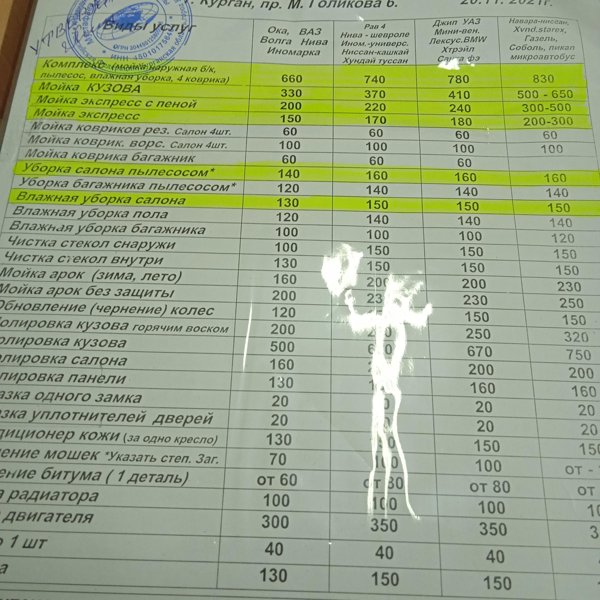 г. Курган, пр. М. Голикова 6. 20.11.2021г.
Виды услуг
Ока, ВАЗ Волга Нива Иномарка
Рав 4 Нива - шевроле Ином.-универс. Ниссан-кашкай Хундай туссан
Джип УАЗ Мини-вен. Лексус.BMW Хтрэйл
Навара-ниссан, Xvnd.starex, Газель, Соболь, пикап микроавтобус
Комплекс (мойка наружная б/к, пылесос, влажная уборка, 4 коврика) 660 740 780 830
Мойка КУЗОВА 330 370 410 500 - 650
Мойка экспресс с пеной 200 220 240 300-500
Мойка экспресс 150 170 180 200-300
Мойка ковриков рез. Салон 4шт. 60 60 60 60
Мойка коврик. ворс. Салон 4шт. 100 100 100 100
Мойка коврика багажник 60 60 60
Уборка салона пылесосом* 140 160 160 160
Уборка багажника пылесосом* 120 140 140 140
Влажная уборка салона 130 150 150 150
Влажная уборка пола 120 140 140 140
Влажная уборка багажника 100 100 100 120
Чистка стекол снаружи 100 150 150 150
Чистка стекол внутри 130 150 150 150
Мойка арок (зима, лето) 160 200 200 230
Мойка арок без защиты 200 230 230 250
Обновление (чернение) колес 120 150 150
олировка кузова горячим воском 200 250 320
олировка кузова 500 670 750
олировка салона 160 200 200
лировка панели 130 160 160
азка одного замка 20 20 20
зка уплотнителей дверей 20 20 20
диционер кожи (за одно кресло) 130 150 150
ение мошек *Указать степ. Заг. 70 100 100 от -
ение битума ( 1 деталь) от 60 от 80 от 80 от
а радиатора 100 100 100 10
двигателя 300 350 350 3
о 1 шт 40 40 40 40
а 130 150 150 150